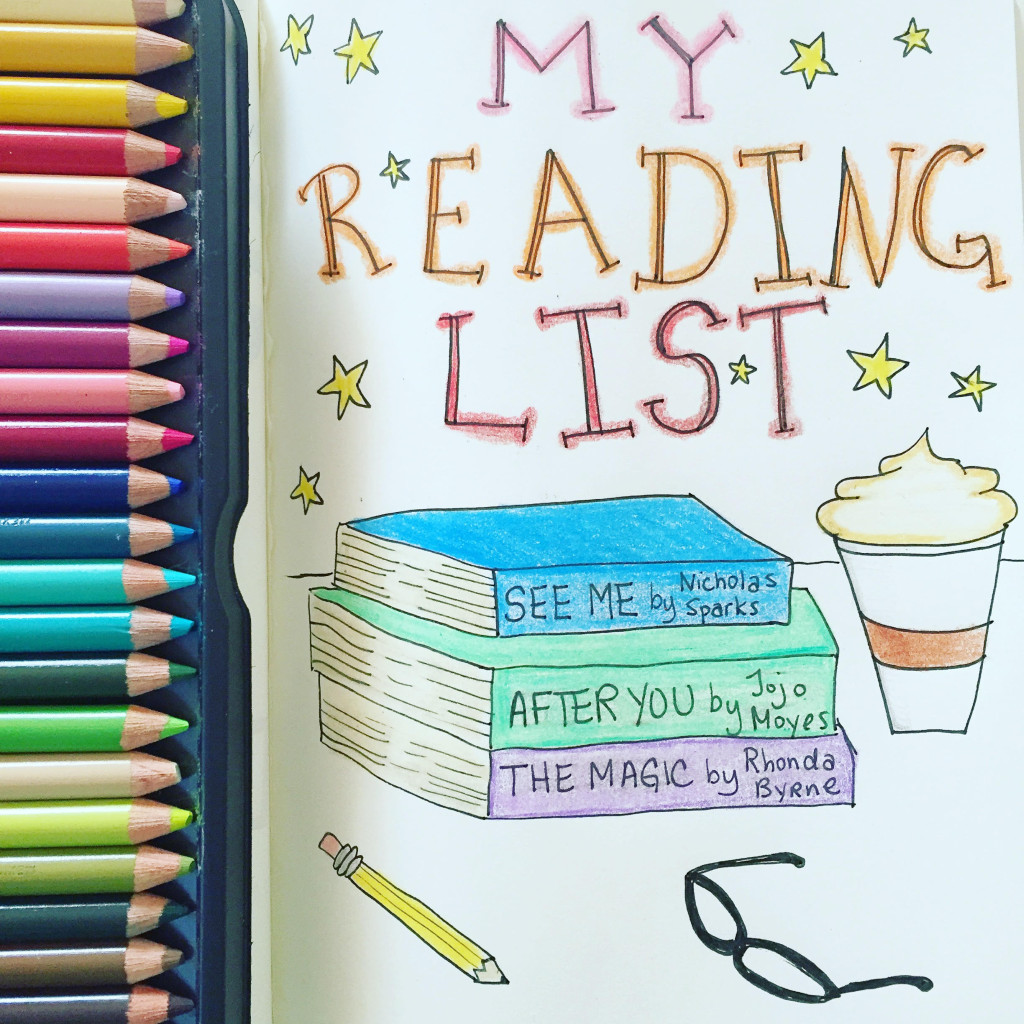 MY
READING
LIST
SEE ME by Nicholas Sparks
AFTER YOU by Jojo Moyes
THE MAGIC by Rhonda Byrne